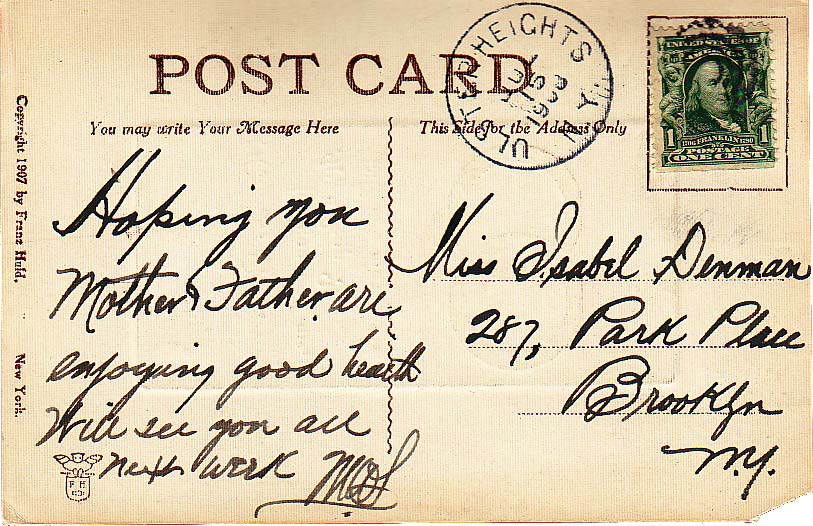 POST CARD
You may write Your Message Here
This Side for the Address Only
ULSTER HEIGHTS N.Y.
UNITED STATES OF AMERICA
1706 FRANKLIN 1790
1 1
POSTAGE
ONE CENT
Hoping you
Mother & Father are
enjoying good health
Will see you all
next week
Miss Isabel Denman
287, Park Place
Brooklyn
N.Y.
Copyright 1907 by Franz Huld,
New York.
F H